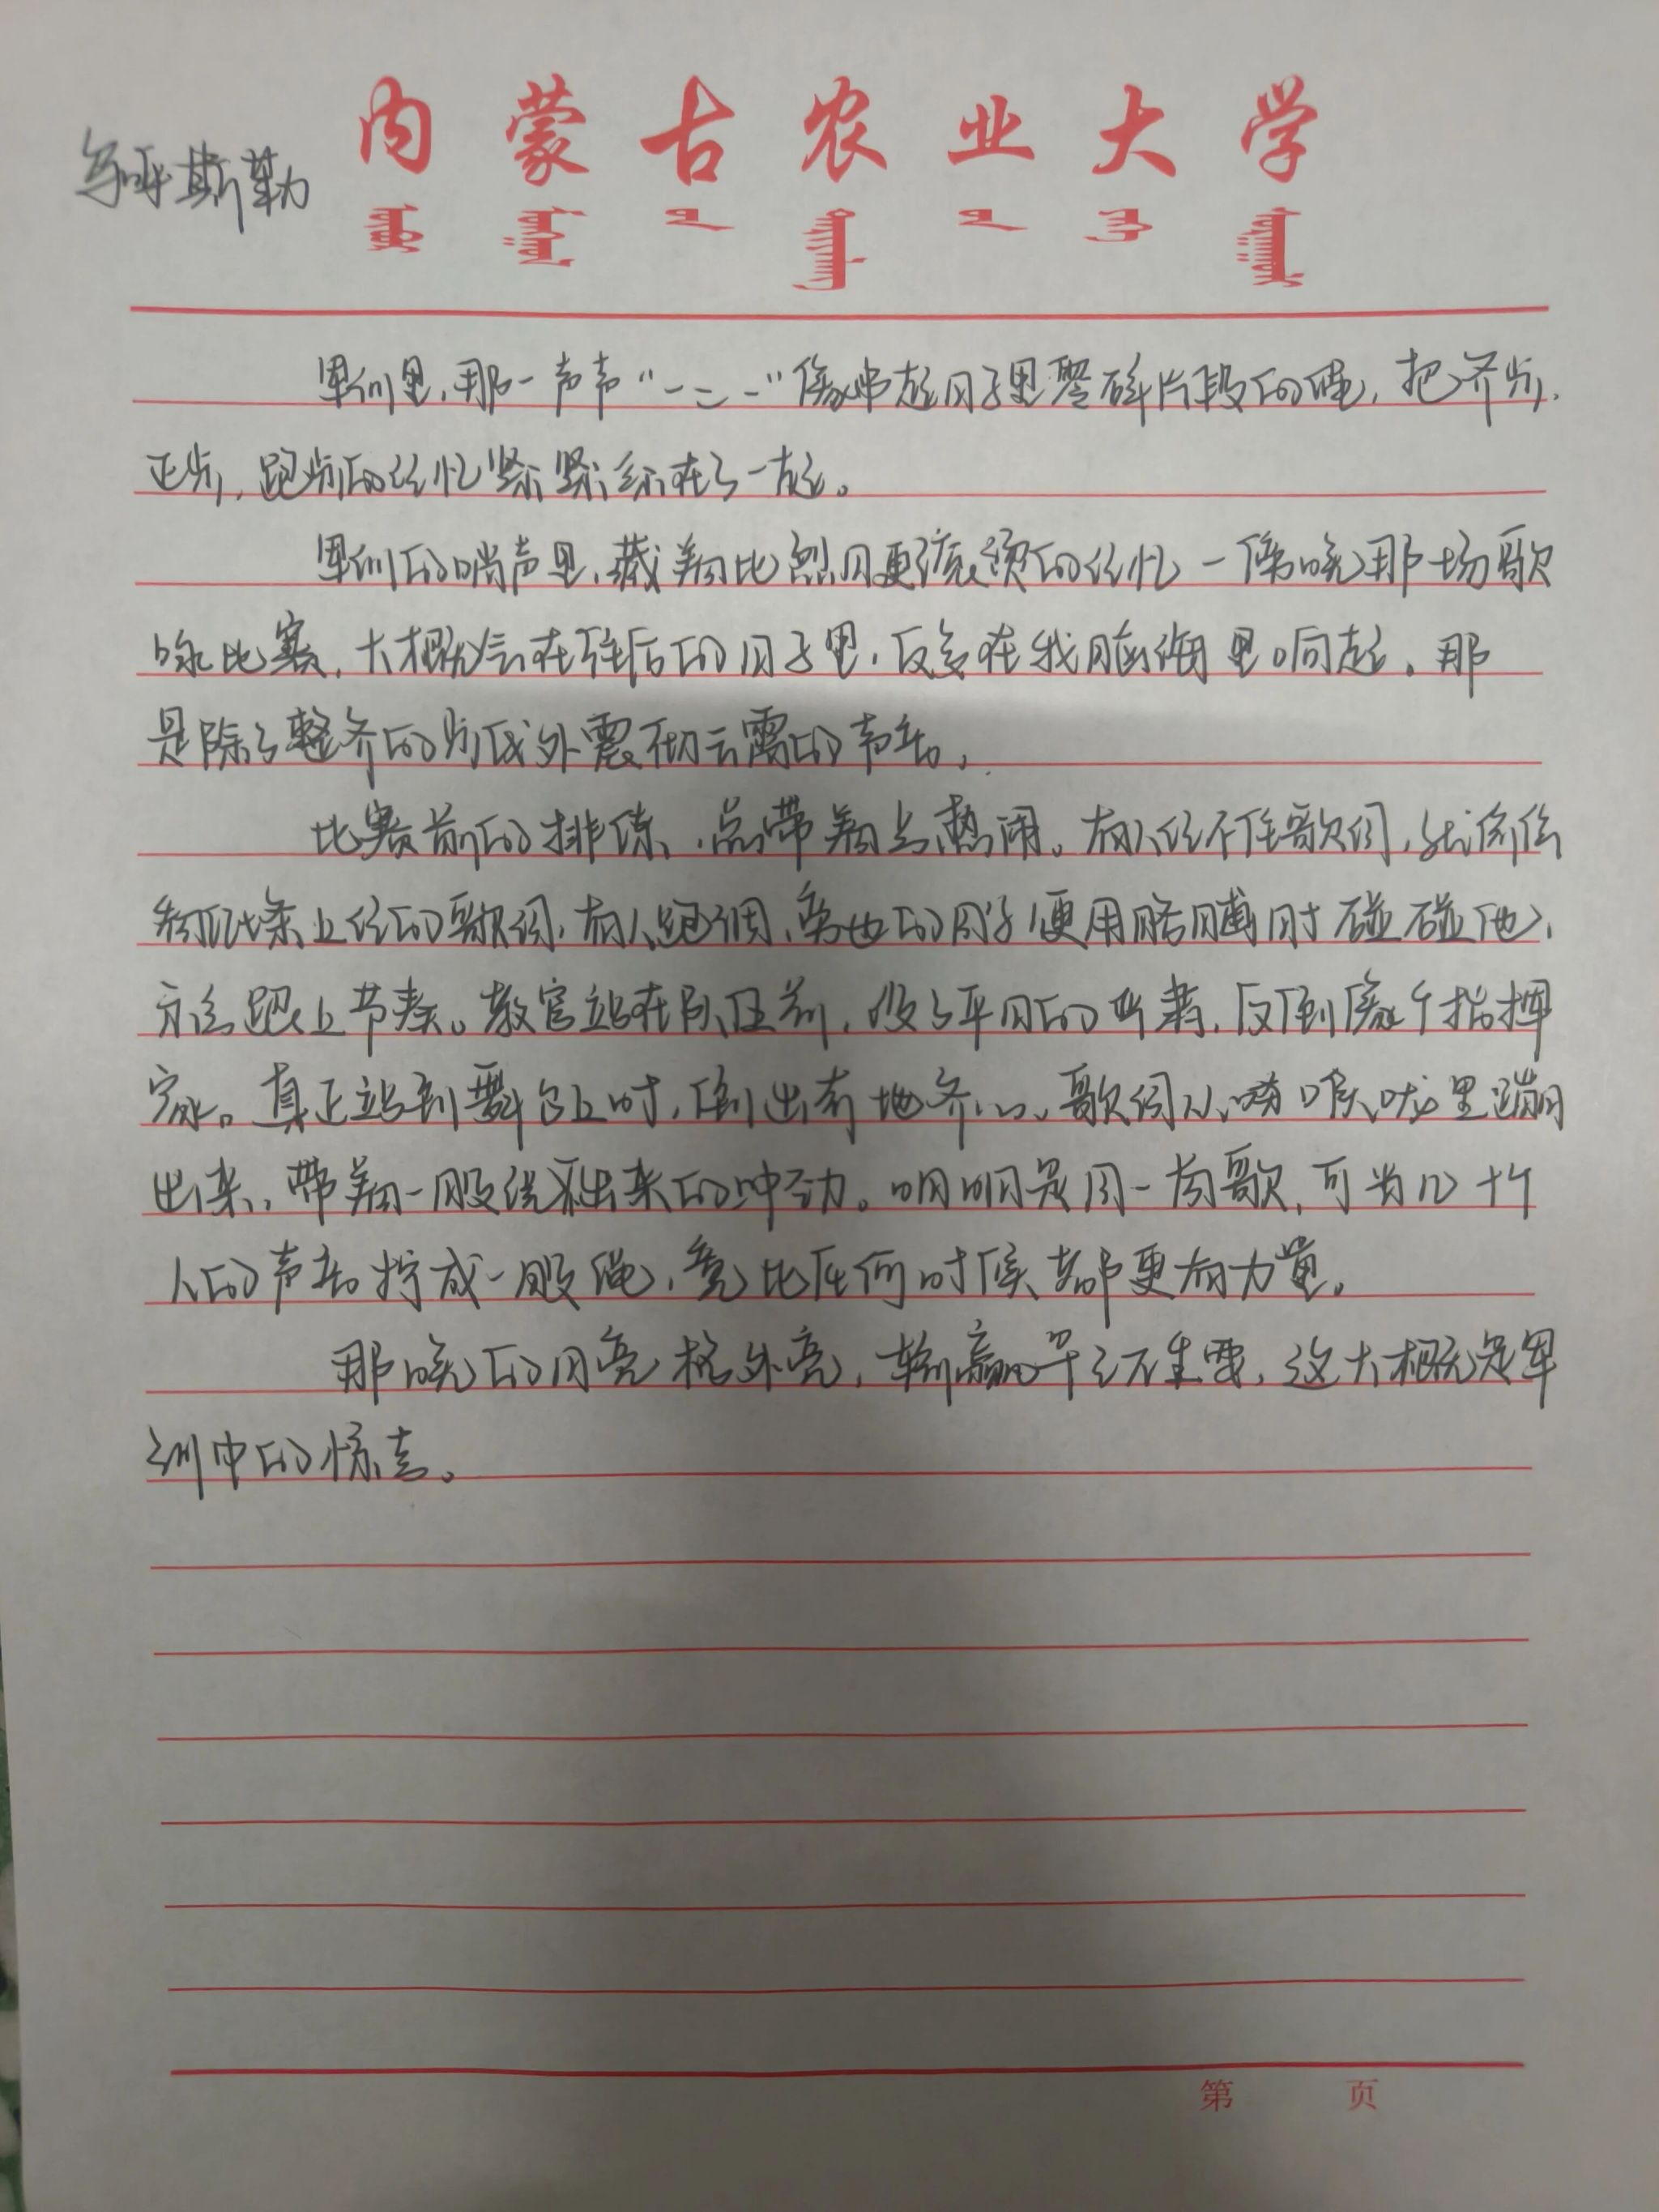 内蒙古农业大学
斯勒
军训里，那一声声“一二一”像串起日子里零碎片段的绳，把齐步，
正步，跑步的记忆紧紧系在了一起。
军训的哨声里，藏着比烈日更滚烫的记忆一傍晚那场歌
咏比赛，大概会在往后的日子里，反复在我脑海里响起。那
是除了整齐的步伐外震彻云霄的声音。
比赛前的排练，总带着点热闹。有人记不住歌词，就偷偷
纸条上记的歌词，有人跑调，旁边的同学便用胳膊肘碰碰他，
方法跟上节奏。教官站在队伍前，没了平日的严肃，反倒像个指挥
家。真正站到舞台上时，倒出奇地齐心。歌词从喉咙里蹦
出来，带着一股说不出来的冲劲。明明是同一首歌，可当几十个
人的声音拧成一股绳，竟比任何时候都更有力量。
那晚的月亮格外亮，输赢早已不重要，这大概是军
训中的惊喜。
第 页